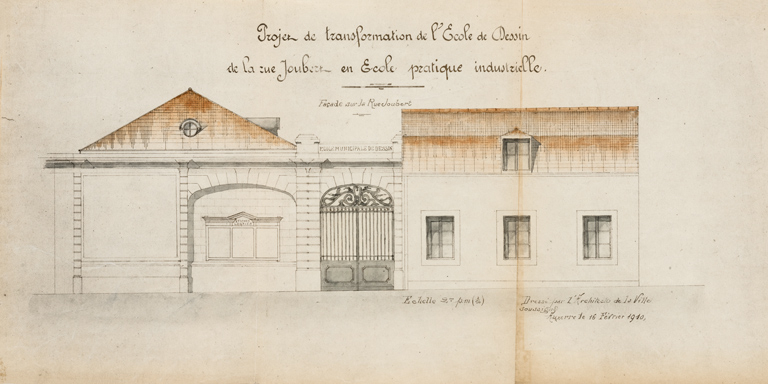 Projet de transformation de l'Ecole de Dessin
de la rue Joubert en Ecole pratique industrielle.
Façade sur la Rue Joubert
ECOLE MUNICIPALE DE DESSIN
Echelle pm (1/50)
Dressé par l'Architecte de la Ville
soussigné
Auxerre le 16 Février 1910.